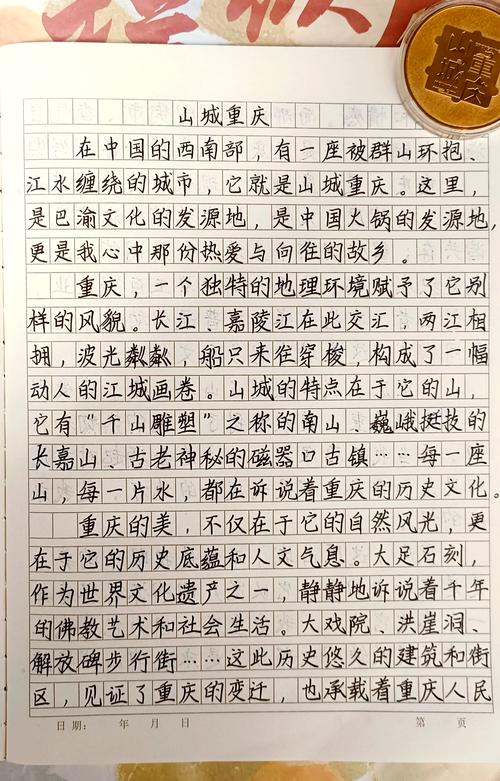 山城重庆
在中国的西南部，有一座被群山环抱、
江水缠绕的城市，它就是山城重庆。这里，
是巴渝文化的发源地，是中国火锅的发源地，
更是我心中那份热爱与向往的故乡。
重庆，一个独特的地理环境赋予了它别
样的风貌。长江、嘉陵江在此交汇，两江相
拥，波光粼粼，船只来往穿梭，构成了一幅
动人的江城画卷。山城的特点在于它的山，
它有“千山雕塑”之称的南山、巍峨挺技的
长嘉山、古老神秘的磁器口古镇……每一座
山，每一片水，都在诉说着重庆的历史文化。
重庆的美，不仅在于它的自然风光，更
在于它的历史底蕴和人文气息。大足石刻，
作为世界文化遗产之一，静静地诉说着千年
的佛教艺术和社会生活。大戏院、洪崖洞、
解放碑步行街……这此历史悠久的建筑和街
区，见证了重庆的变迁，也承载着重庆人民
日期： 年 月 日 第 页
山城重庆